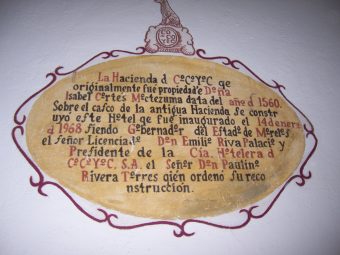 La Hacienda d Cocoyoc qe
originalmente fué propiedad e Doña
Isabel Cortes Moctezuma data del año d 1560.
Sobre el casco de la antigua Hacienda se constr
uyó este Hotel qe fué inaugurado el 14 d enero
d 1968 siendo Gobernador del Estado de Morelos
el señor Licenciado Don Emilio Riva Palacio y
Presidente de la Cía. Hotelera d
Cocoyoc, S.A. el Señor Don Paulino
Rivera Torres qién ordenó su reco
nstrucción.